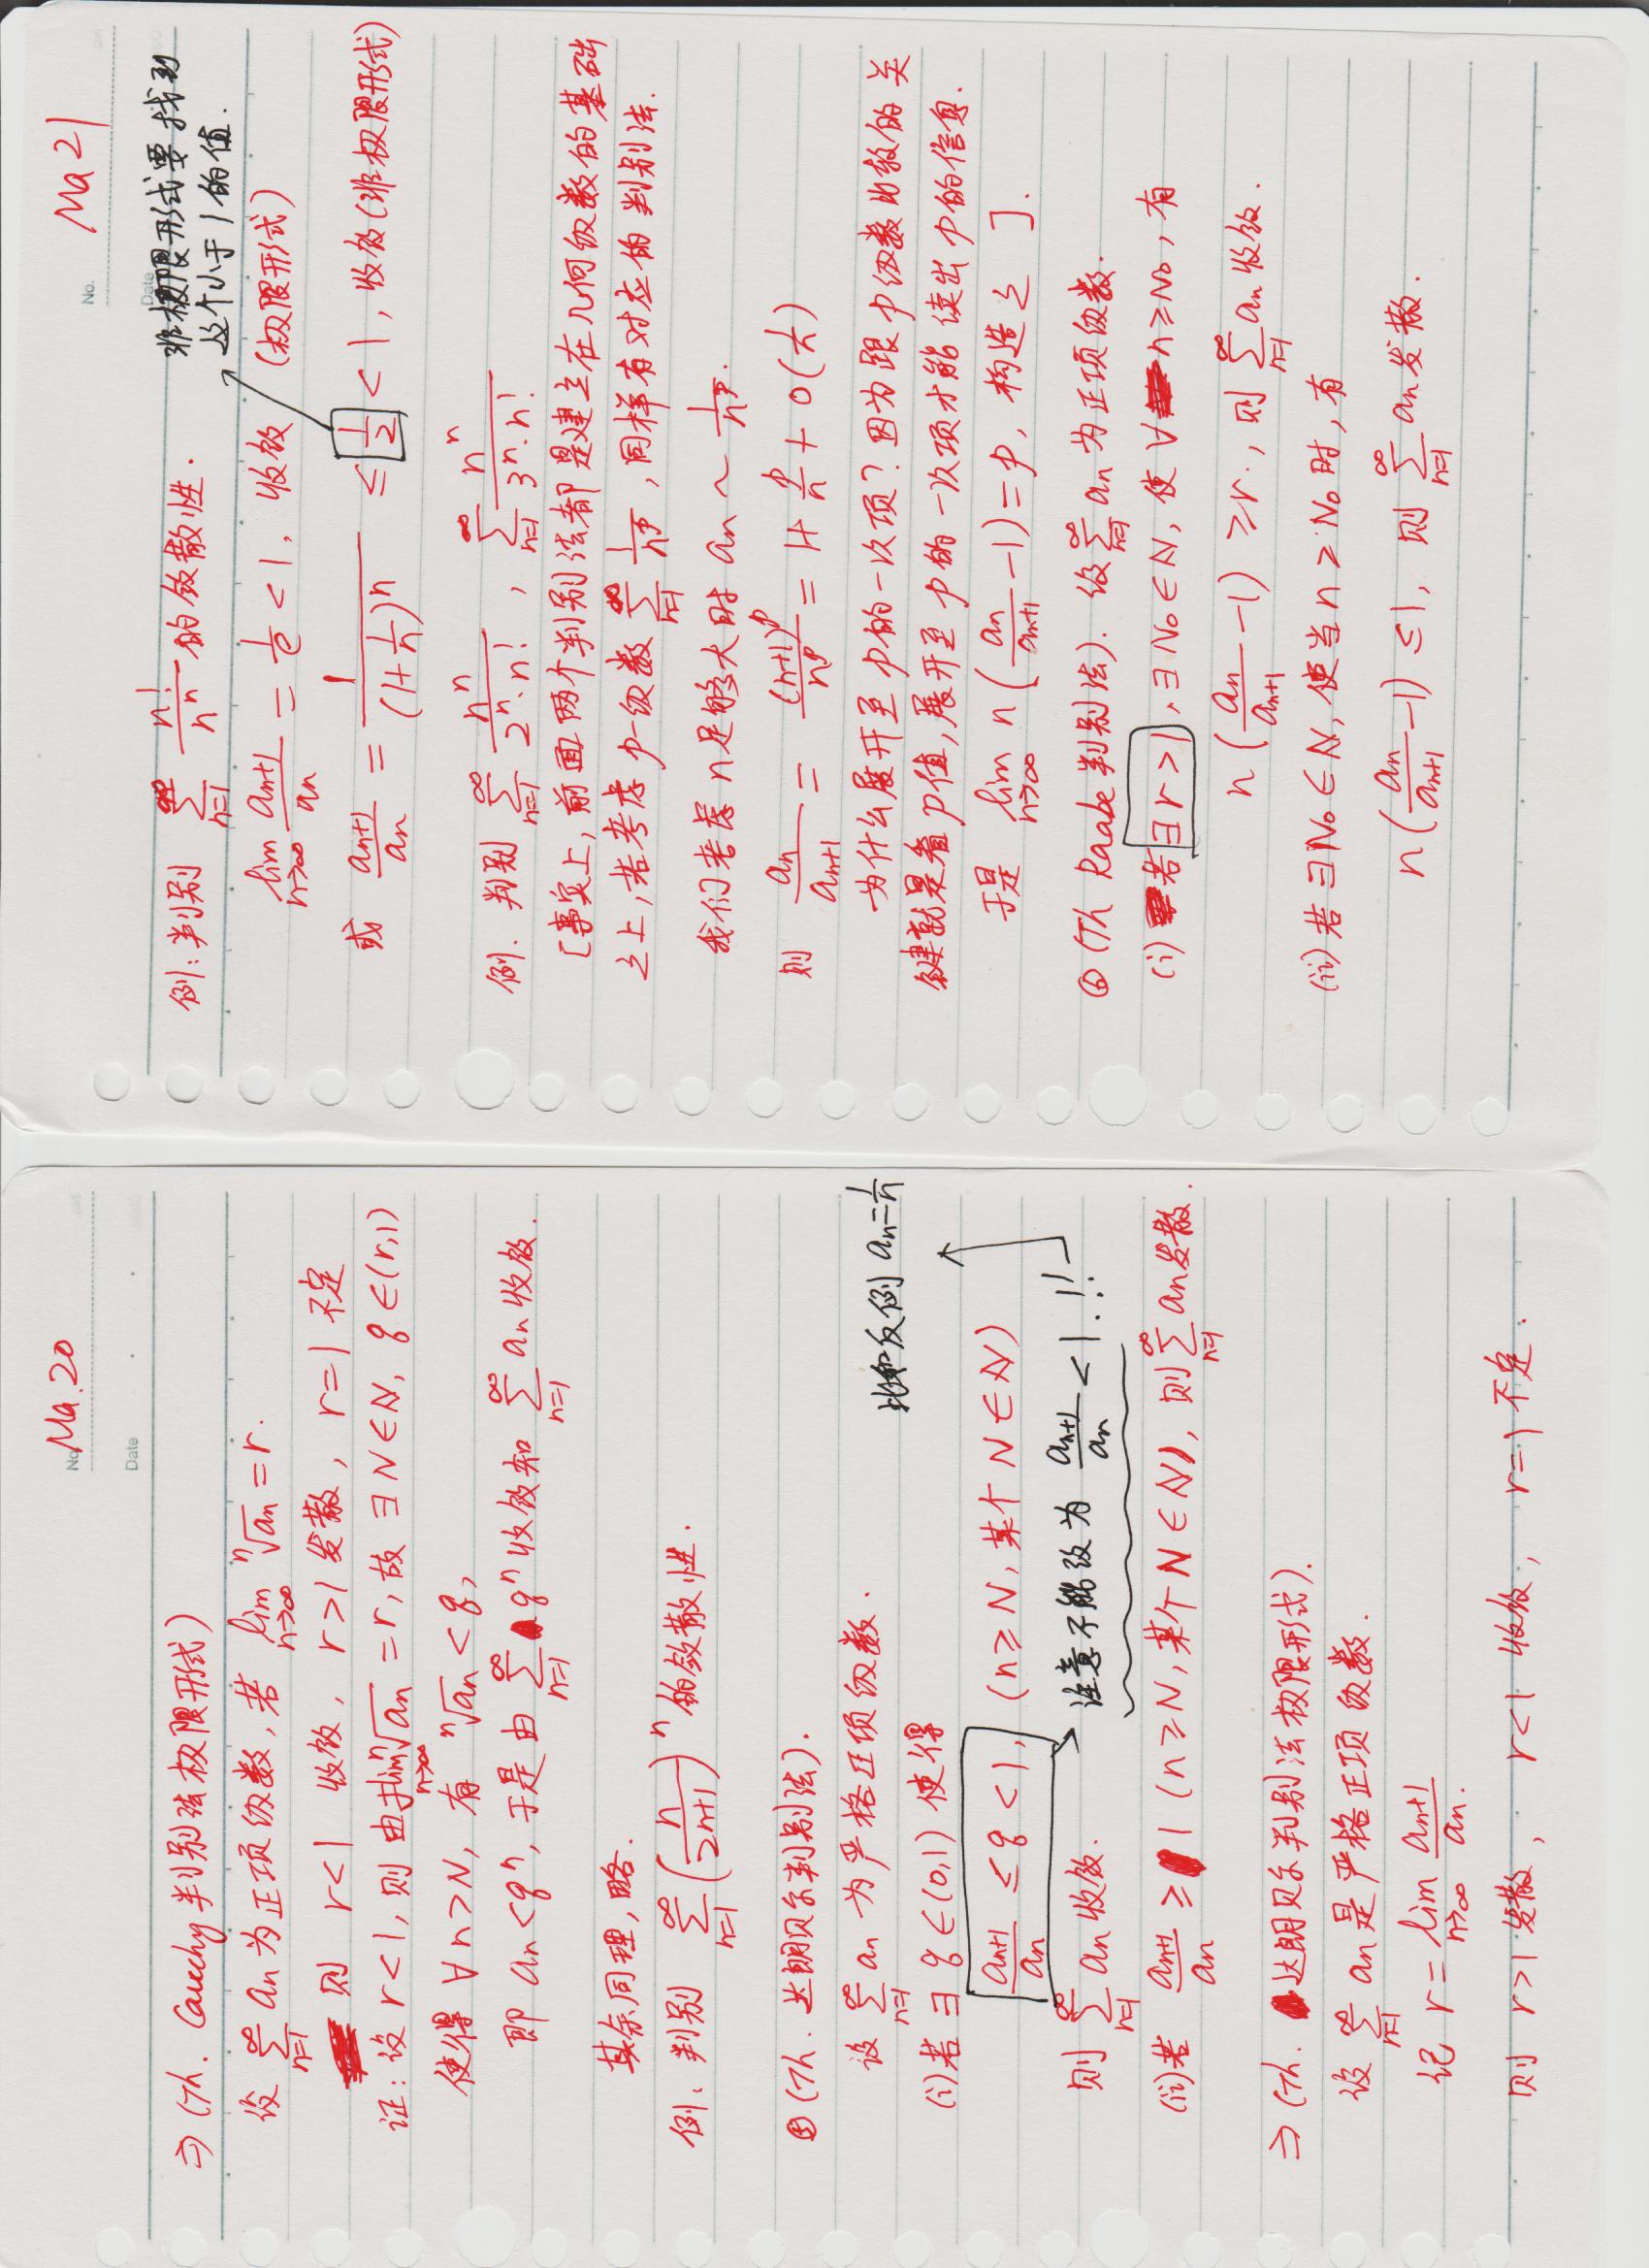 No. Ma.20
Date
⇒ (Th. Cauchy 判别法极限形式)
设 ∑_{n=1}^{∞} an 为正项级数, 若 lim_{n→∞} ⁿ√an = r.
则 r<1 收敛, r>1 发散, r=1 不定
证: 设 r<1, 则由 lim_{n→∞} ⁿ√an = r, 故 ∃N∈ℕ, q∈(r,1)
使得 ∀n>N, 有 ⁿ√an < q,
即 an<qⁿ, 于是由 ∑_{n=1}^{∞} qⁿ 收敛知 ∑_{n=1}^{∞} an 收敛.
其余同理, 略.
例. 判别 ∑_{n=1}^{∞} (n/(2n+1))ⁿ 的敛散性.
⑤ (Th. 达朗贝尔判别法).
设 ∑_{n=1}^{∞} an 为严格正项级数.
比如反例 an=1/n
(i) 若 ∃ q∈(0,1) 使得
a_{n+1}/an ≤ q < 1, (n≥N, 某个 N∈ℕ)
则 ∑_{n=1}^{∞} an 收敛. 注意不能改为 a_{n+1}/an < 1.!!
(ii) 若 a_{n+1}/an ≥ 1 (n≥N, 某个 N∈ℕ), 则 ∑_{n=1}^{∞} an 发散.
⇒ (Th. 达朗贝尔判别法极限形式).
设 ∑_{n=1}^{∞} an 是严格正项级数.
记 r = lim_{n→∞} a_{n+1}/an.
则 r>1 发散, r<1 收敛, r=1 不定.
No. Ma 21
Date
非极限形式要找到
这个小于1的值.
例: 判别 ∑_{n=1}^{∞} n!/nⁿ 的敛散性.
lim_{n→∞} a_{n+1}/an = 1/e < 1, 收敛 (极限形式)
或 a_{n+1}/an = 1/(1+1/n)ⁿ ≤ 1/2 < 1, 收敛(非极限形式)
例. 判别 ∑_{n=1}^{∞} nⁿ/(2ⁿ·n!), ∑_{n=1}^{∞} nⁿ/(3ⁿ·n!)
[事实上, 前面两个判别法都是建立在几何级数的基础
之上, 若考虑 p-级数 ∑_{n=1}^{∞} 1/n^p, 同样有对应的判别法.
我们考虑 n 足够大时 an ~ 1/n^p.
则 an/a_{n+1} = (n+1)^p/n^p = 1 + p/n + o(1/n)
为什么展开至 p 的一次项? 因为跟 p 级数比较的关
键就是看 p 值, 展开至 p 的一次项才能读出 p 的信息.
于是 lim_{n→∞} n(an/a_{n+1} - 1) = p, 构造之 ].
⑥ (Th Raabe 判别法). 设 ∑_{n=1}^{∞} an 为正项级数.
(i) 若 ∃ r>1, ∃ N₀∈ℕ, 使 ∀ n≥N₀, 有
n(an/a_{n+1} - 1) ≥ r., 则 ∑_{n=1}^{∞} an 收敛.
(ii) 若 ∃ N₀∈ℕ, 使当 n≥N₀ 时, 有
n(an/a_{n+1} - 1) ≤ 1, 则 ∑_{n=1}^{∞} an 发散.